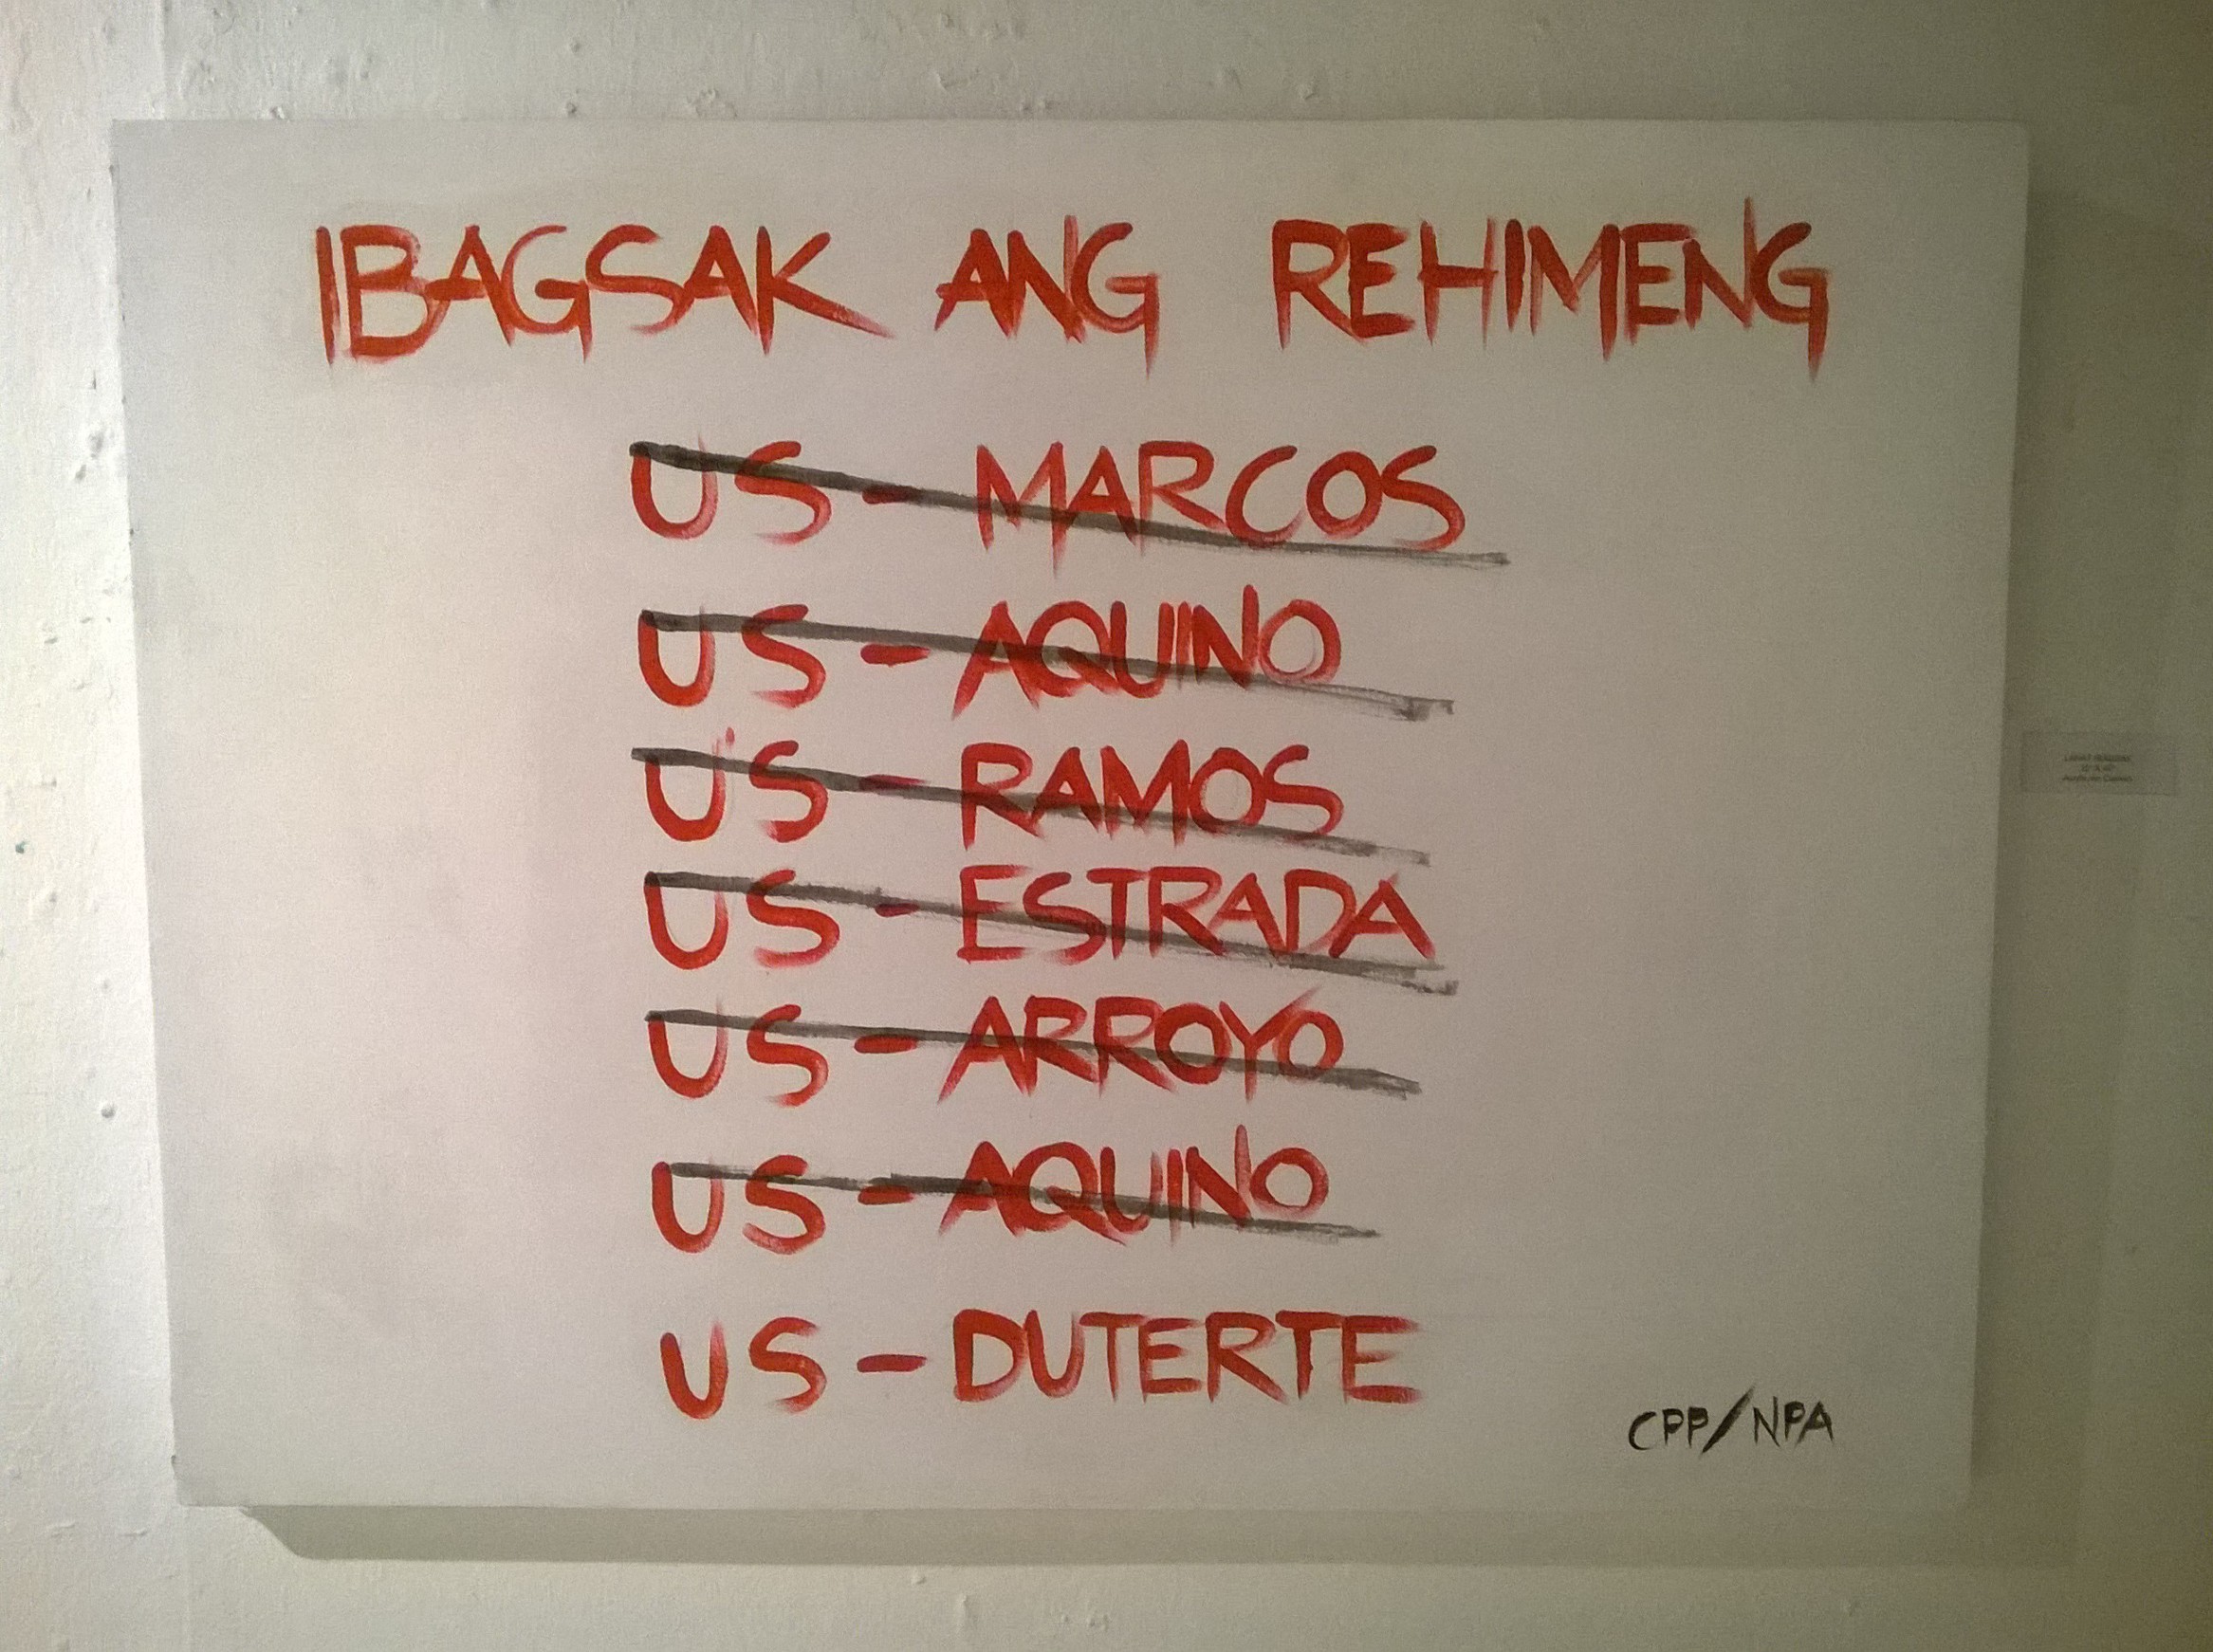 IBAGSAK ANG REHIMENG
US - MARCOS
US - AQUINO
US - RAMOS
US - ESTRADA
US - ARROYO
US - AQUINO
US - DUTERTE
CPP/NPA